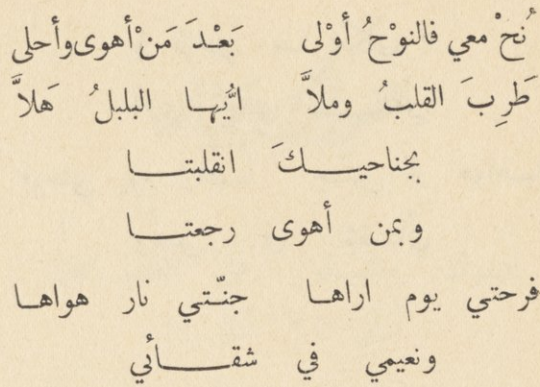 نُحْ معي فالنوْحُ أوْلى بَعْدَ مَنْ أهوى وأحلى
طَرِبَ القلبُ وملاَّ ايُّها البلبلُ هَلاَّ
بجناحيكَ انقلبتا
وبمن أهوى رجعتا
فرحتي يوم اراها جنّتي نار هواها
ونعيمي في شقائي